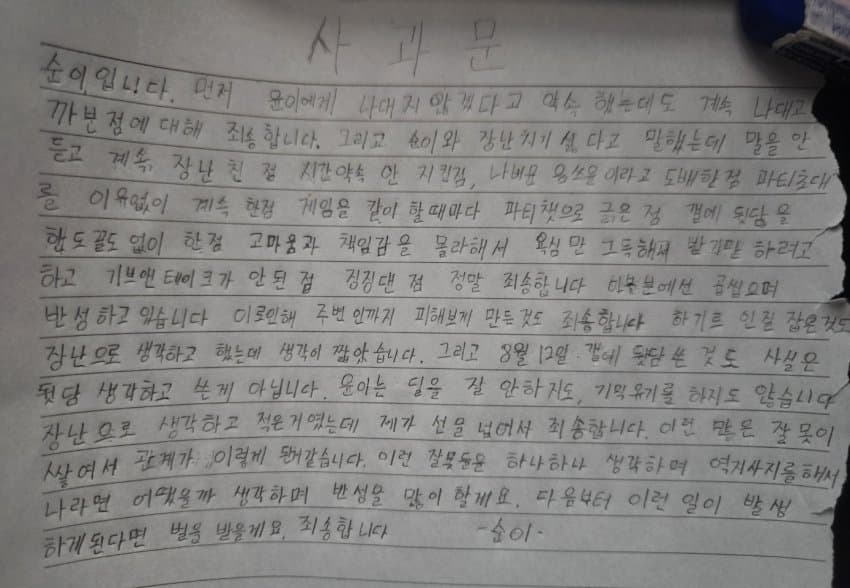 사과문
순이입니다. 먼저 윤이에게 나대지 않겠다고 약속했는데도 계속 나대고
까분점에 대해 죄송합니다. 그리고 순이와 장난치기 싫다고 말했는데 말을 안
듣고 계속, 장난 친 점 시간약속 안 지킨점, 나비문 이라고 도배한점 파티초대
를 이유없이 계속 한점 게임을 같이 할때마다 파티챗으로 긁은 점 갤에 뒷담을
한도끝도없이 한점 고마움과 책임감을 몰라해서 욕심만 그득해서 받기만 하려고
하고 기브앤테이크가 안된 점 징징댄 점 정말 죄송합니다 이부분에선 곱씹으며
반성하고있습니다 이로인해 주변인까지 피해보게 만든것도 죄송합니다 하기르 인질 잡은것도
장난으로 생각하고 했는데 생각이 짧았습니다. 그리고 8월 12일 갤에 뒷담쓴 것도 사실은
뒷담 생각하고 쓴게 아닙니다. 윤이는 딜을 잘 안하지도, 기믹유기를 하지도 않습니다
장난으로 생각하고 적은거였는데 제가 선을 넘어서 죄송합니다. 이런 많은 잘못이
쌓여서 관계가 이렇게 된거같습니다. 이런 잘못들은 하나하나 생각하며 역지사지를해서
나라면 어땠을까 생각하며 반성을 많이 할게요. 다음부터 이런 일이 발생
하게된다면 벌을 받을게요. 죄송합니다 -순이-